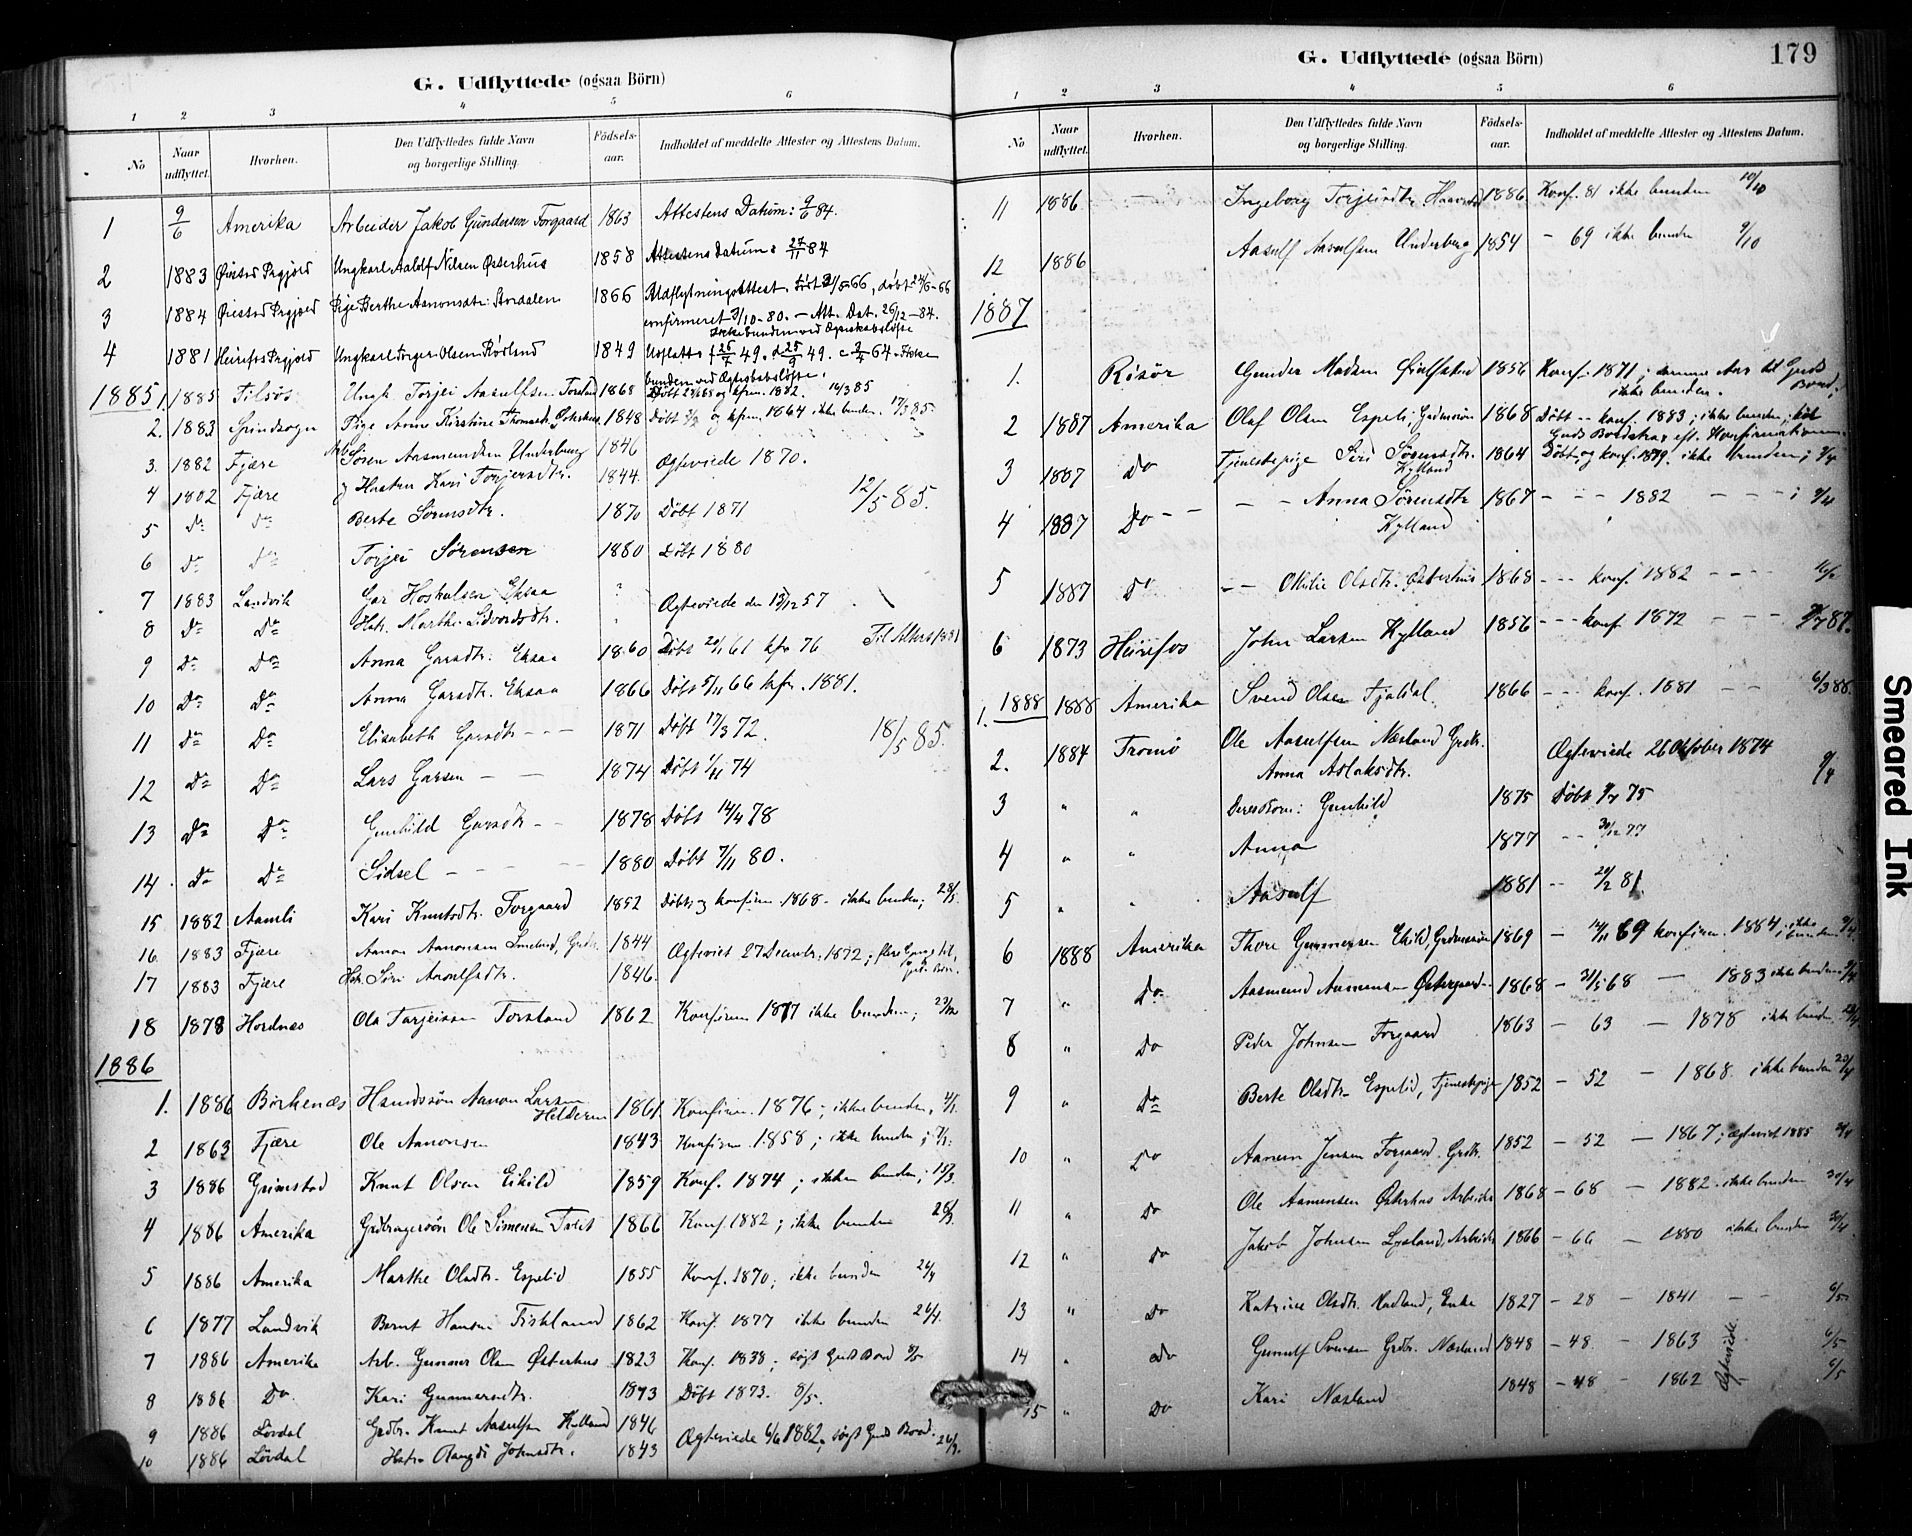 G. Udflyttede (ogsaa Börn)
1 2 3 4 5 6
No Naar udflyttet. Hvorhen. Den Udflyttedes fulde Navn og borgerlige Stilling. Födsels-aar. Indholdet af meddelte Attester og Attestens Datum.
1 9/6 Amerika Arbeider Jakob Gundersen Torgaard 1863 Attestens Datum: 9/6 84.
2 1883 Øiestad Prgjæld Ungkarl Aadolf Nilsen Østerhus 1858 Attestens Datum: 27/11 84
3 1884 Øiestad Prgjæld Pige Berthe Aanonsdtr. Stordalen 1866 Udflytningsattest, født 2/5 66, døbt 24/6-66
confirmeret 3/10-80. – Att. Dat. 26/12-84.
Ikke bunden ved Ægteskabsløfte
4 1881 Heirefos Prgjæld Ungkarl Torger Olsen Rødland 1849 Udflatt. f 26/7 49. d 25/9 49. c 64. Ikke
bunden ved Ægteskabsløfte.
1885 1. 1885 Tilsøs Ungk. Torjei Aasulfsen Torsland 1868 Døbt 68 og kfrm. 1882. 14/3 85
2. 1883 Spindsogn Pige Anne Kirstine Thomasdtr. Østerhus 1848 Døbt og kfrm. 1864 ikke bunden. 17/3 85
3. 1882 Fjære Arb. Søren Aasmundsen Underberg 1846
4 1882 Fjære og Hustru Kari Torjersdtr. 1844 Ægteviede 1870.
12/5 85.
5 Do Do Berte Sørensdtr. 1870 Døbt 1871
6 Do Do Torjei Sørensen 1880 Døbt 1880
7 1883 Landvik Gar Hoskulsen Eksaa ?
8 Do Do Hstr. Marthe Sidvordsdtr. Ægteviede den 13/12 57
9 Do Do Anna Garsdtr. Eksaa 1860 Døbt 20/1 61 kfr. 76 Til Alters 1881
10 Do Do Anna Garsdtr. Eksaa 1866 Døbt 5/11 66 kfr. 1881.
11 Do Do Elisabeth Garsdtr. – – – 1871 Døbt 17/3 72.
18/5 85.
12 Do Do Lars Garsen – – 1874 Døbt 1/11 74
13 Do Do Gunhild Garsdtr. – – 1878 Døbt 14/4 78
14 Do Do Sidsel – – – 1880 Døbt 7/11 80.
15 1882 Aamli Kari Knutsdtr. Torgaard 1852 Døbt og konfirm. 1868 – ikke bunden; 28/5
16. 1883 Fjære Aanon Aanonsen Smeland, Grdbr. 1844
17 1883 Fjære Hstr. Siri Aasulfsdtr. 1846. Ægteviet 27 Decembr. 1872; flere Gange til Guds Bord.
18 1878 Hordnes Ola Tarjeisen Torsland 1862 Konfirm 1877 ikke bunden; 23/12
1886
1. 1886 Birkenæs Handssøn Aanon Larsen Heldern 1861 Konfirm. 1876; ikke bunden, 4/1.
2 1863 Fjære Ole Aanonsen 1843 Konfirm 1858; ikke bunden;
3 1886 Grimstad Knut Olsen Eikild 1859 Konf. 1874; ikke bunden, 15/3.
4 1886 Amerika Gaardbrugersøn Ole Simonsen Tveit 1866 Konf. 1882; ikke bunden 28/3.
5 1886 Amerika Marthe Olsdtr. Espelid 1855 Konf. 1870; ikke bunden 26/4
6 1877 Landvik Bernt Hansen Fiskland 1862 Konf. 1877 ikke bunden 26/4.
7 1886 Amerika Arb. Gunner Olsen Østerhus 1823 Konf. 1838; søgt Guds Bord 8/5
8 1886 Do Kari Gunnersdtr. 1873 Døbt 1873. 8/5.
9 1886 Løvdal Grdbr. Knut Aasulfsen Kylland 1846
10 1886 Løvdal Hstr. Rangdi Johnsdtr. 1843 Ægteviede 1882, søgt Guds Bord. 26/9.
G. Udflyttede (ogsaa Börn) 179
1 2 3 4 5 6
No Naar udflyttet. Hvorhen. Den Udflyttedes fulde Navn og borgerlige Stilling. Födsels-aar. Indholdet af meddelte Attester og Attestens Datum.
11 1886 – Ingeborg Torjeisdtr. 1886 Konf. 81 ikke bunden 10/10
12 1886 Aasulf Aasulfsen Underberg 1854 – 69 ikke bunden 9/10
1887
1. Risør Gunder Madsen 1856 Konf. 1871; samme Aar til Guds Bord; ikke bunden.
2 1887 Amerika Olaf Olsen Espeli, Gaardmssøn 1868 Døbt – konf. 1883; ikke bunden; til
Guds Bord strax eft. Konfirmationen.
3 1887 Do Tjenestepige Siri Sørensdtr. Kylland 1864 Døbt og konf. 1879. ikke bunden;
4 1887 Do – – – Anna Sørensdtr. Kylland 1867 – – – 1882 – – – ;
5 1887 Do – – Othilie Olsdtr. Østerhus 1868 – – – konf. 1882 – – –
6 1873 Heirefos John Larsen Kylland 1856 – – – konf. 1872 – – – 87.
1888
1. 1888 Amerika Svend Olsen Fjaldal. 1866 – – – konf. 1881 – – 6/3 88.
2. 1884 Tromø Ole Aasulfsen Næsland Grdbr.
Anna Aslaksdtr. Ægteviede 26 Oktober 1874 9/4
3 " " Deres Børn: Gunhild 1875 Døbt 75
4 " " Anna 1877 – – 30/12 77
5 " " Aasulf 1881 – – 20/2 81.
6 1888 Amerika Thore Gunnersen Ekild, Grdmssøn 1869 – 14/11 69 konfirm. 1884; ikke bunden 9/4
7 " Do Aasmund Aamensen Østergaard 1868 – 31/5 68 – 1883 ikke bunden 9/4
8 " Do Peder Johnsen Torgaard 1863 – 63 – 1878 ikke bunden
9 " Do Berte Olsdtr. Espelid, Tjenestepige 1852 – 52 – 1868 ikke bunden 20/4
10 " Do Aanon Jensen Torgaard. Grdbr. 1852 – 52 – 1867; ægteviet 1885
11 " Do Ole Aamunsen Østerhus Arbeider 1868 – 68 – 1882 ikke bunden 30/4
12 " Do Jakob Johnsen Lysland, Arbeider 1866 – 66 – 1880 ikke bunden 30/4
13 " Do Katrine Olsdtr. Nadland, Enke 1827 – 28 – 1841 – – 6/5
14 " Do Gunnulf Svensen Grdbr. Næsland 1848 – 48. – 1863 6/5
Ægteviede.
15 " Do Kari Næsland 1848 – 48 – 1862 6/5
Smeared Ink